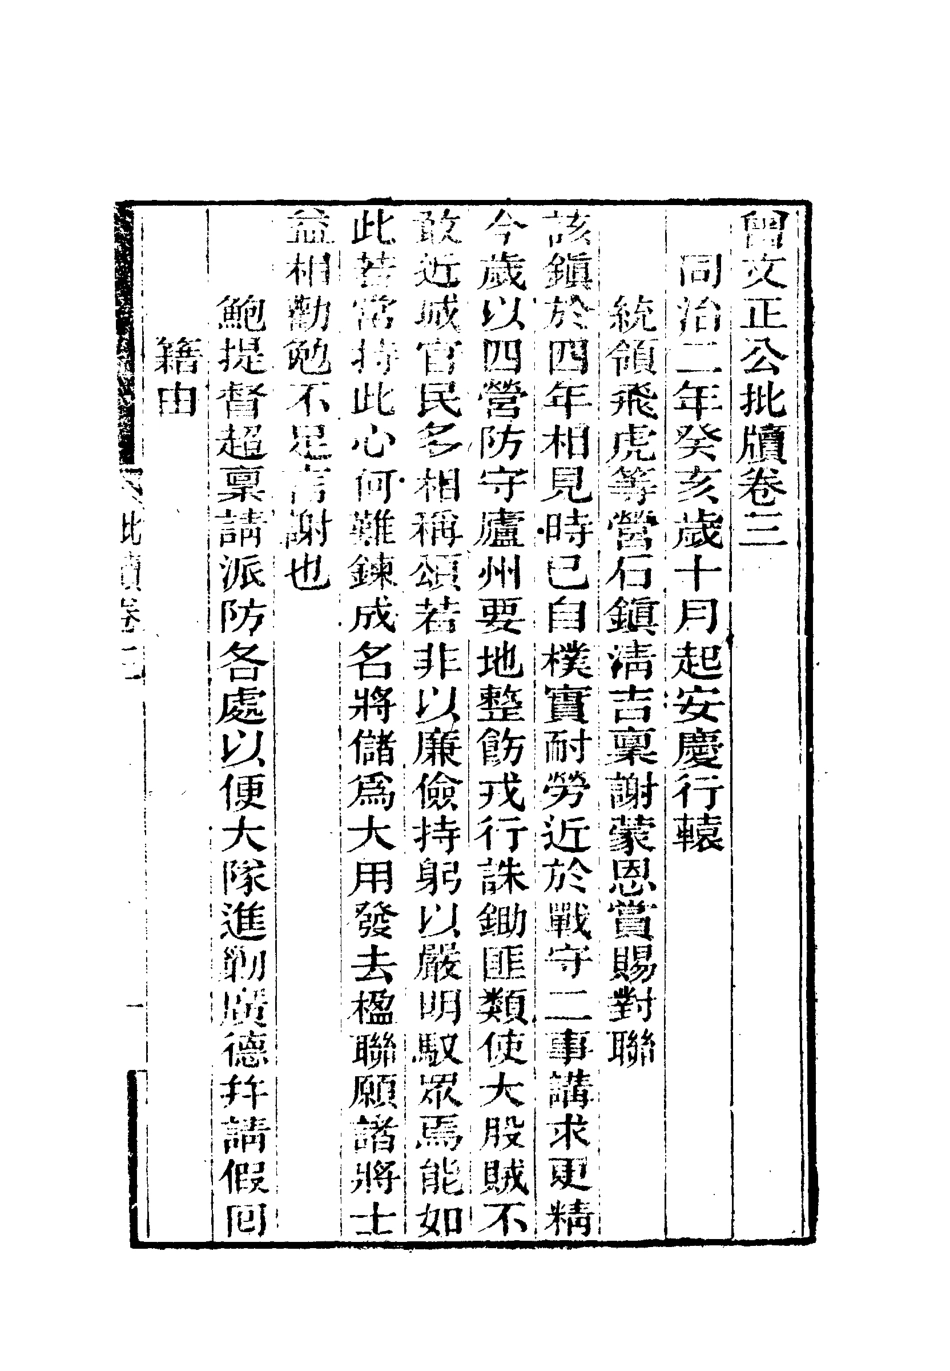 曾文正公批牘卷三
同治二年癸亥歲十月起安慶行轅
統領飛虎等營石鎭淸吉稟謝蒙恩賞賜對聯
該鎭於四年相見時已自樸實耐勞近於戰守二事講求更精
今歲以四營防守廬州要地整飭戎行誅鋤匪類使大股賊不
敢近城官民多相稱頌若非以廉儉持躬以嚴明馭眾焉能如
此若常持此心何難鍊成名將儲爲大用發去楹聯願諸將士
益相勸勉不足言謝也
鮑提督超稟請派防各處以便大隊進勦廣德幷請假回
籍由
批牘卷三
一